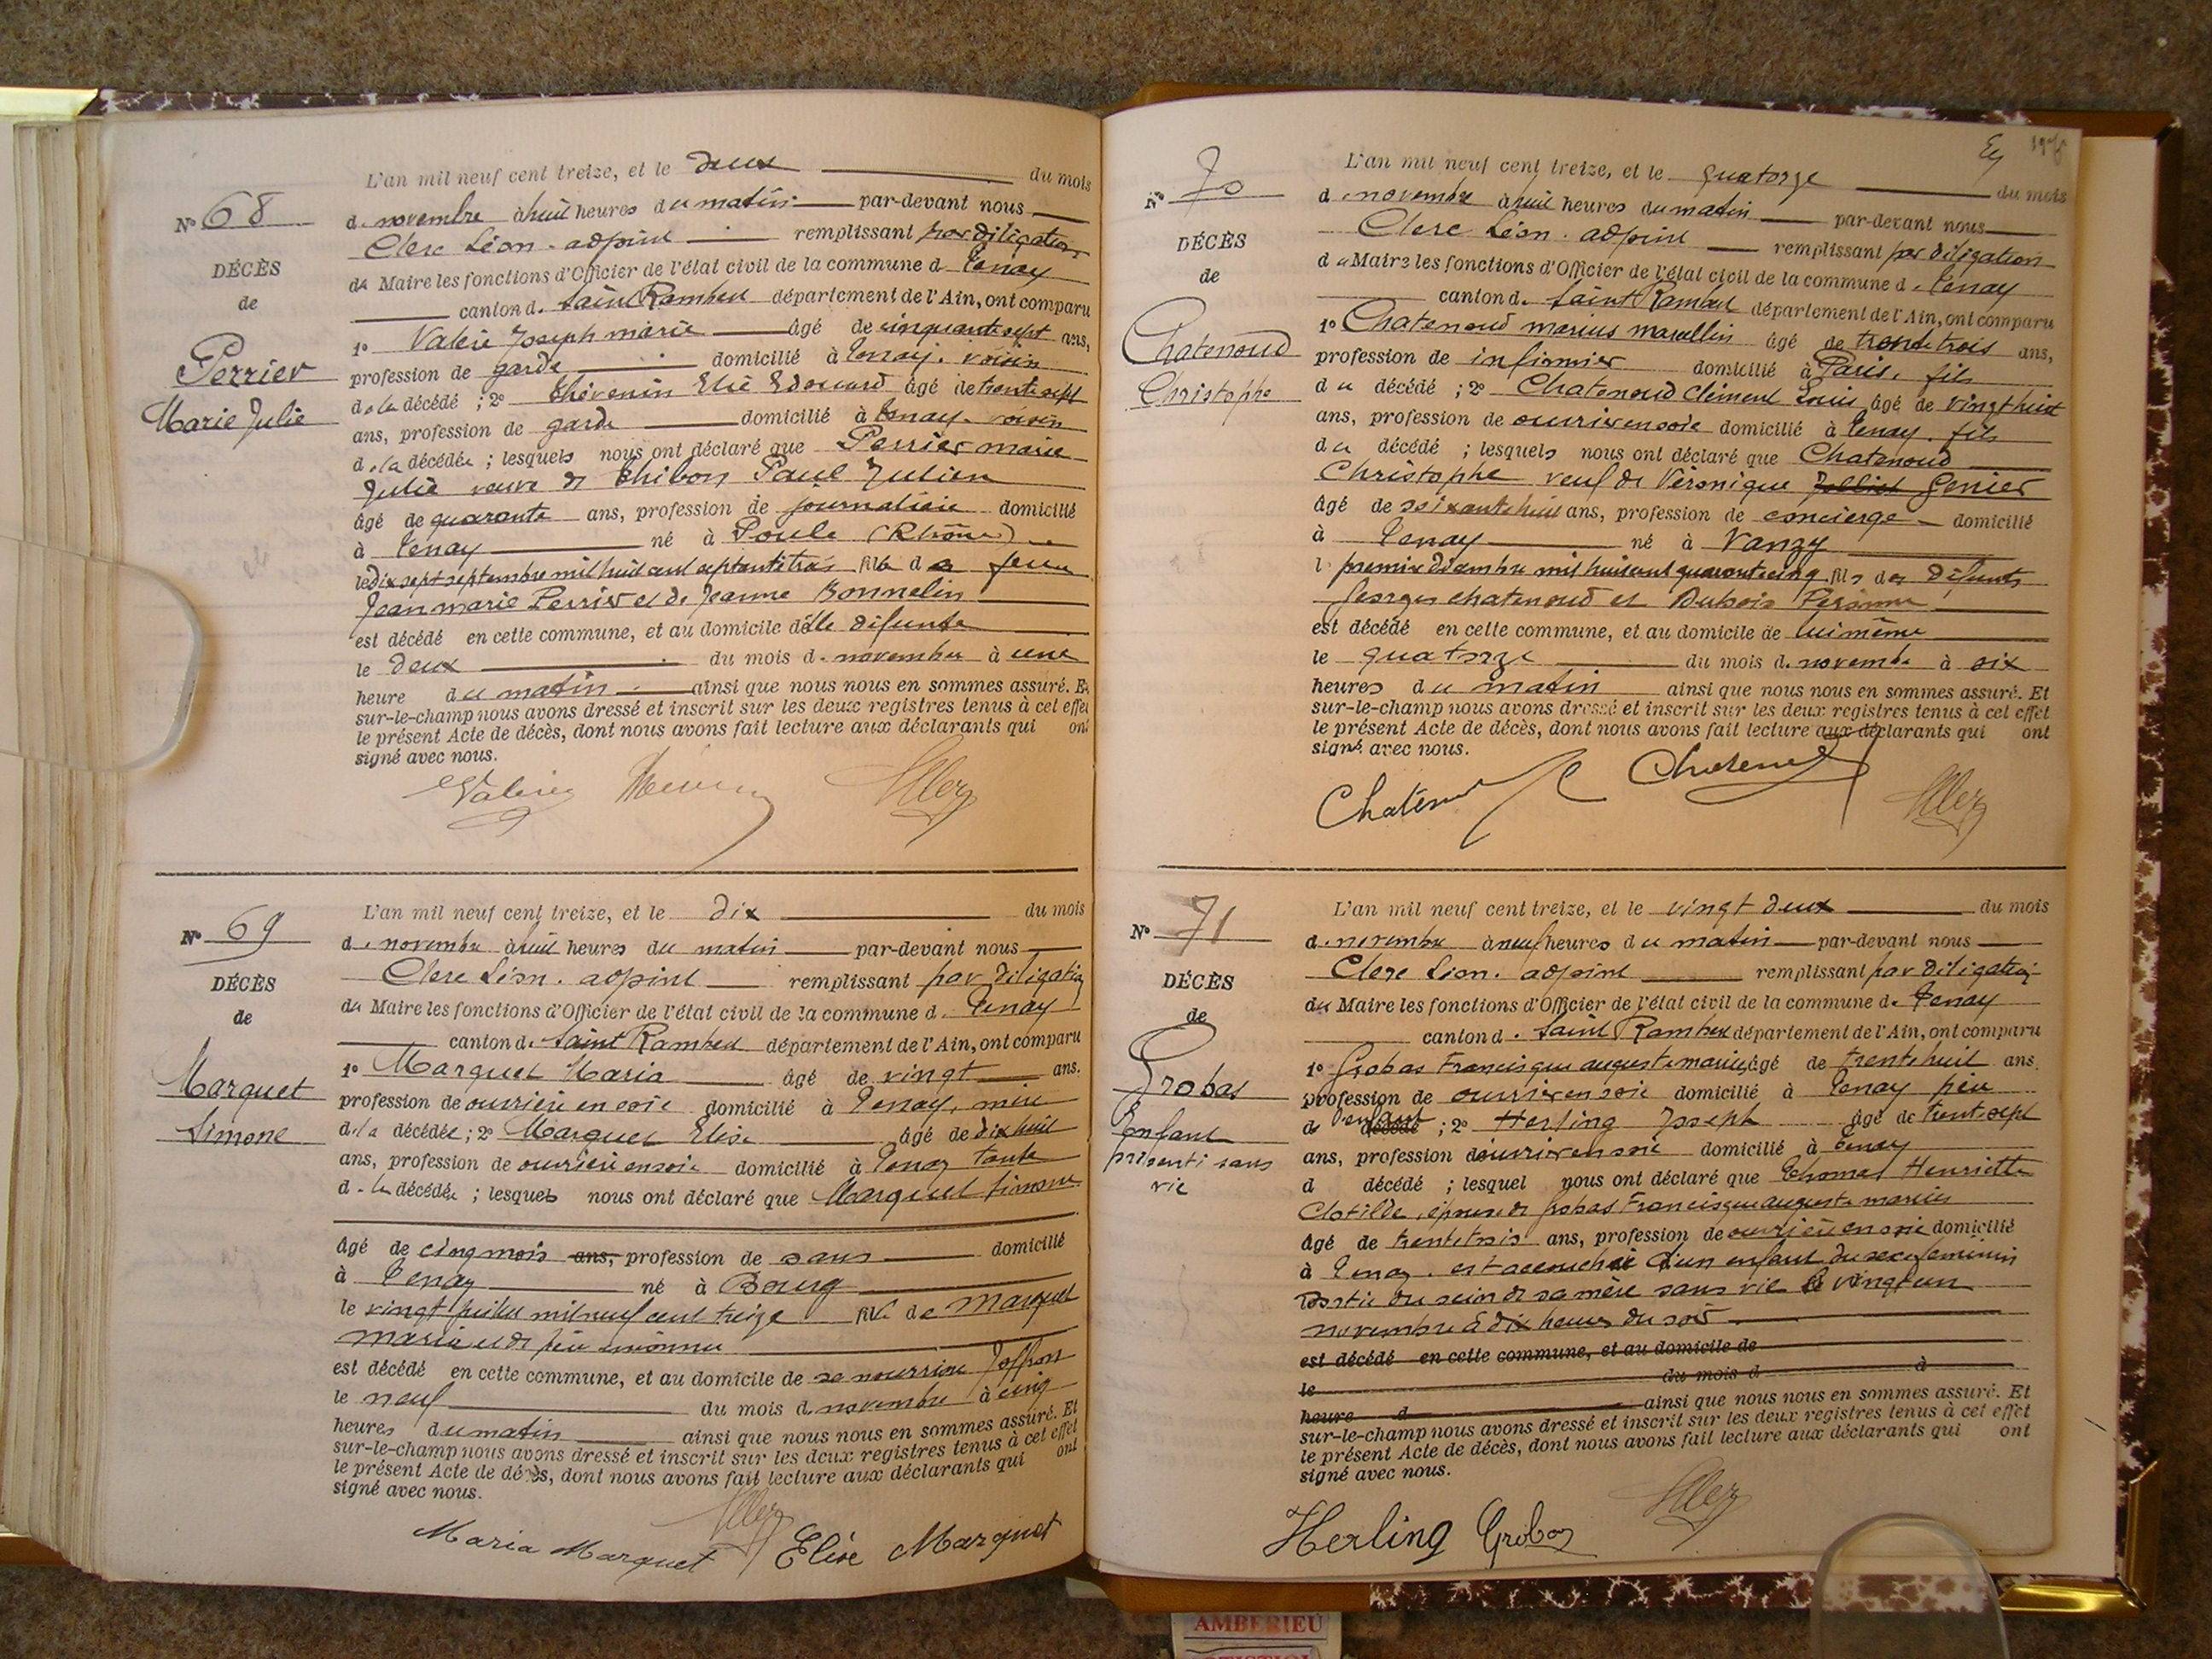 L'an mil neuf cent treize, et le deux du mois
N° 68
d. novembre à huit heures du matin par-devant nous
Clerc Léon. adjoint remplissant par délégation
DÉCÈS
du Maire les fonctions d'Officier de l'état civil de la commune d. Tenay
de
canton d. Saint Rambert département de l'Ain, ont comparu
1° Valérie Joseph marie âgé de cinquante sept ans,
Perrier
profession de garde domicilié à Tenay. voisin
Marie Julie
de la décédé ; 2° Thévenin Elie Edouard âgé de trente sept
ans, profession de garde domicilié à Tenay. voisin
d. la décédée ; lesquels nous ont déclaré que Perrier marie
Julie veuve de Thibon Paul Julien
âgé de quarante ans, profession de journalière domicilié
à Tenay né à Poule (Rhône)
le dix sept septembre mil huit cent septante trois fille de feu
Jean marie Perrier et de Jeanne Bonnelin
est décédé en cette commune, et au domicile de la défunte
le deux du mois d. novembre à une
heure du matin ainsi que nous nous en sommes assuré. Et
sur-le-champ nous avons dressé et inscrit sur les deux registres tenus à cet effet
le présent Acte de décès, dont nous avons fait lecture aux déclarants qui ont
signé avec nous.
L'an mil neuf cent treize, et le dix du mois
N° 69
d. novembre à huit heures du matin par-devant nous
Clerc Léon. adjoint remplissant par délégation
DÉCÈS
du Maire les fonctions d'Officier de l'état civil de la commune d. Tenay
de
canton d. Saint Rambert département de l'Ain, ont comparu
1° Marquet Maria âgé de vingt ans.
Marquet
profession de ouvrière en soie domicilié à Tenay, mère
Simone
d. la décédée ; 2° Marquet Elise âgé de dix huit
ans, profession de ouvrière en soie domicilié à Tenay tante
d. la décédée ; lesquels nous ont déclaré que Marquet Simone
âgé de cinq mois ans, profession de sans domicilié
à Tenay né à Bourg
le vingt juillet mil neuf cent treize fille de Marquet
Maria et de père inconnu
est décédé en cette commune, et au domicile de sa nourrice Joffron
le neuf du mois d. novembre à cinq
heures du matin ainsi que nous nous en sommes assuré. Et
sur-le-champ nous avons dressé et inscrit sur les deux registres tenus à cet effet
le présent Acte de décès, dont nous avons fait lecture aux déclarants qui ont
signé avec nous.
Maria Marquet Elise Marquet
L'an mil neuf cent treize, et le quatorze du mois
N° 70
d. novembre à huit heures du matin par-devant nous
Clerc Léon. adjoint remplissant par délégation
DÉCÈS
du Maire les fonctions d'Officier de l'état civil de la commune d. Tenay
de
canton d. Saint Rambert département de l'Ain, ont comparu
1° Chatenoud marius marcellin âgé de trente trois ans,
Chatenoud
profession de infirmier domicilié à Paris, fils
Christophe
du décédé ; 2° Chatenoud Clément Louis âgé de vingt huit
ans, profession de ouvrier en soie domicilié à Tenay. fils
du décédé ; lesquels nous ont déclaré que Chatenoud
Christophe veuf de Véronique Genier
âgé de soixante huit ans, profession de concierge domicilié
à Tenay né à Vanzy
l. premier décembre mil huit cent quarante cinq fils des défunts
Georges Chatenoud et Dubois Péronne
est décédé en cette commune, et au domicile de lui même
le quatorze du mois d. novembre à six
heures du matin ainsi que nous nous en sommes assuré. Et
sur-le-champ nous avons dressé et inscrit sur les deux registres tenus à cet effet
le présent Acte de décès, dont nous avons fait lecture aux déclarants qui ont
signé avec nous.
L'an mil neuf cent treize, et le vingt deux du mois
N° 71
d. novembre à neuf heures du matin par-devant nous
Clerc Léon. adjoint remplissant par délégation
DÉCÈS
du Maire les fonctions d'Officier de l'état civil de la commune d. Tenay
de
canton d. Saint Rambert département de l'Ain, ont comparu
1° Grobas Francisque auguste marius âgé de trente huit ans.
Grobas
profession de ouvrier en soie domicilié à Tenay père
Enfant
d l'enfant décédé ; 2° Herling Joseph âgé de trente sept
présenté sans
ans, profession d'ouvrier en soie domicilié à Tenay
vie
d décédé ; lesquel nous ont déclaré que Thomas Henriette
Clotilde, épouse de Grobas Francisque auguste marius
âgé de trente trois ans, profession de ouvrière en soie domicilié
à Tenay. est accouchée d'un enfant du sexe féminin
sortie du sein de sa mère sans vie le vingt un
novembre à dix heures du soir
est décédé en cette commune, et au domicile de
le du mois d à
heure d ainsi que nous nous en sommes assuré. Et
sur-le-champ nous avons dressé et inscrit sur les deux registres tenus à cet effet
le présent Acte de décès, dont nous avons fait lecture aux déclarants qui ont
signé avec nous.
Herling Grobas
AMBERIEU